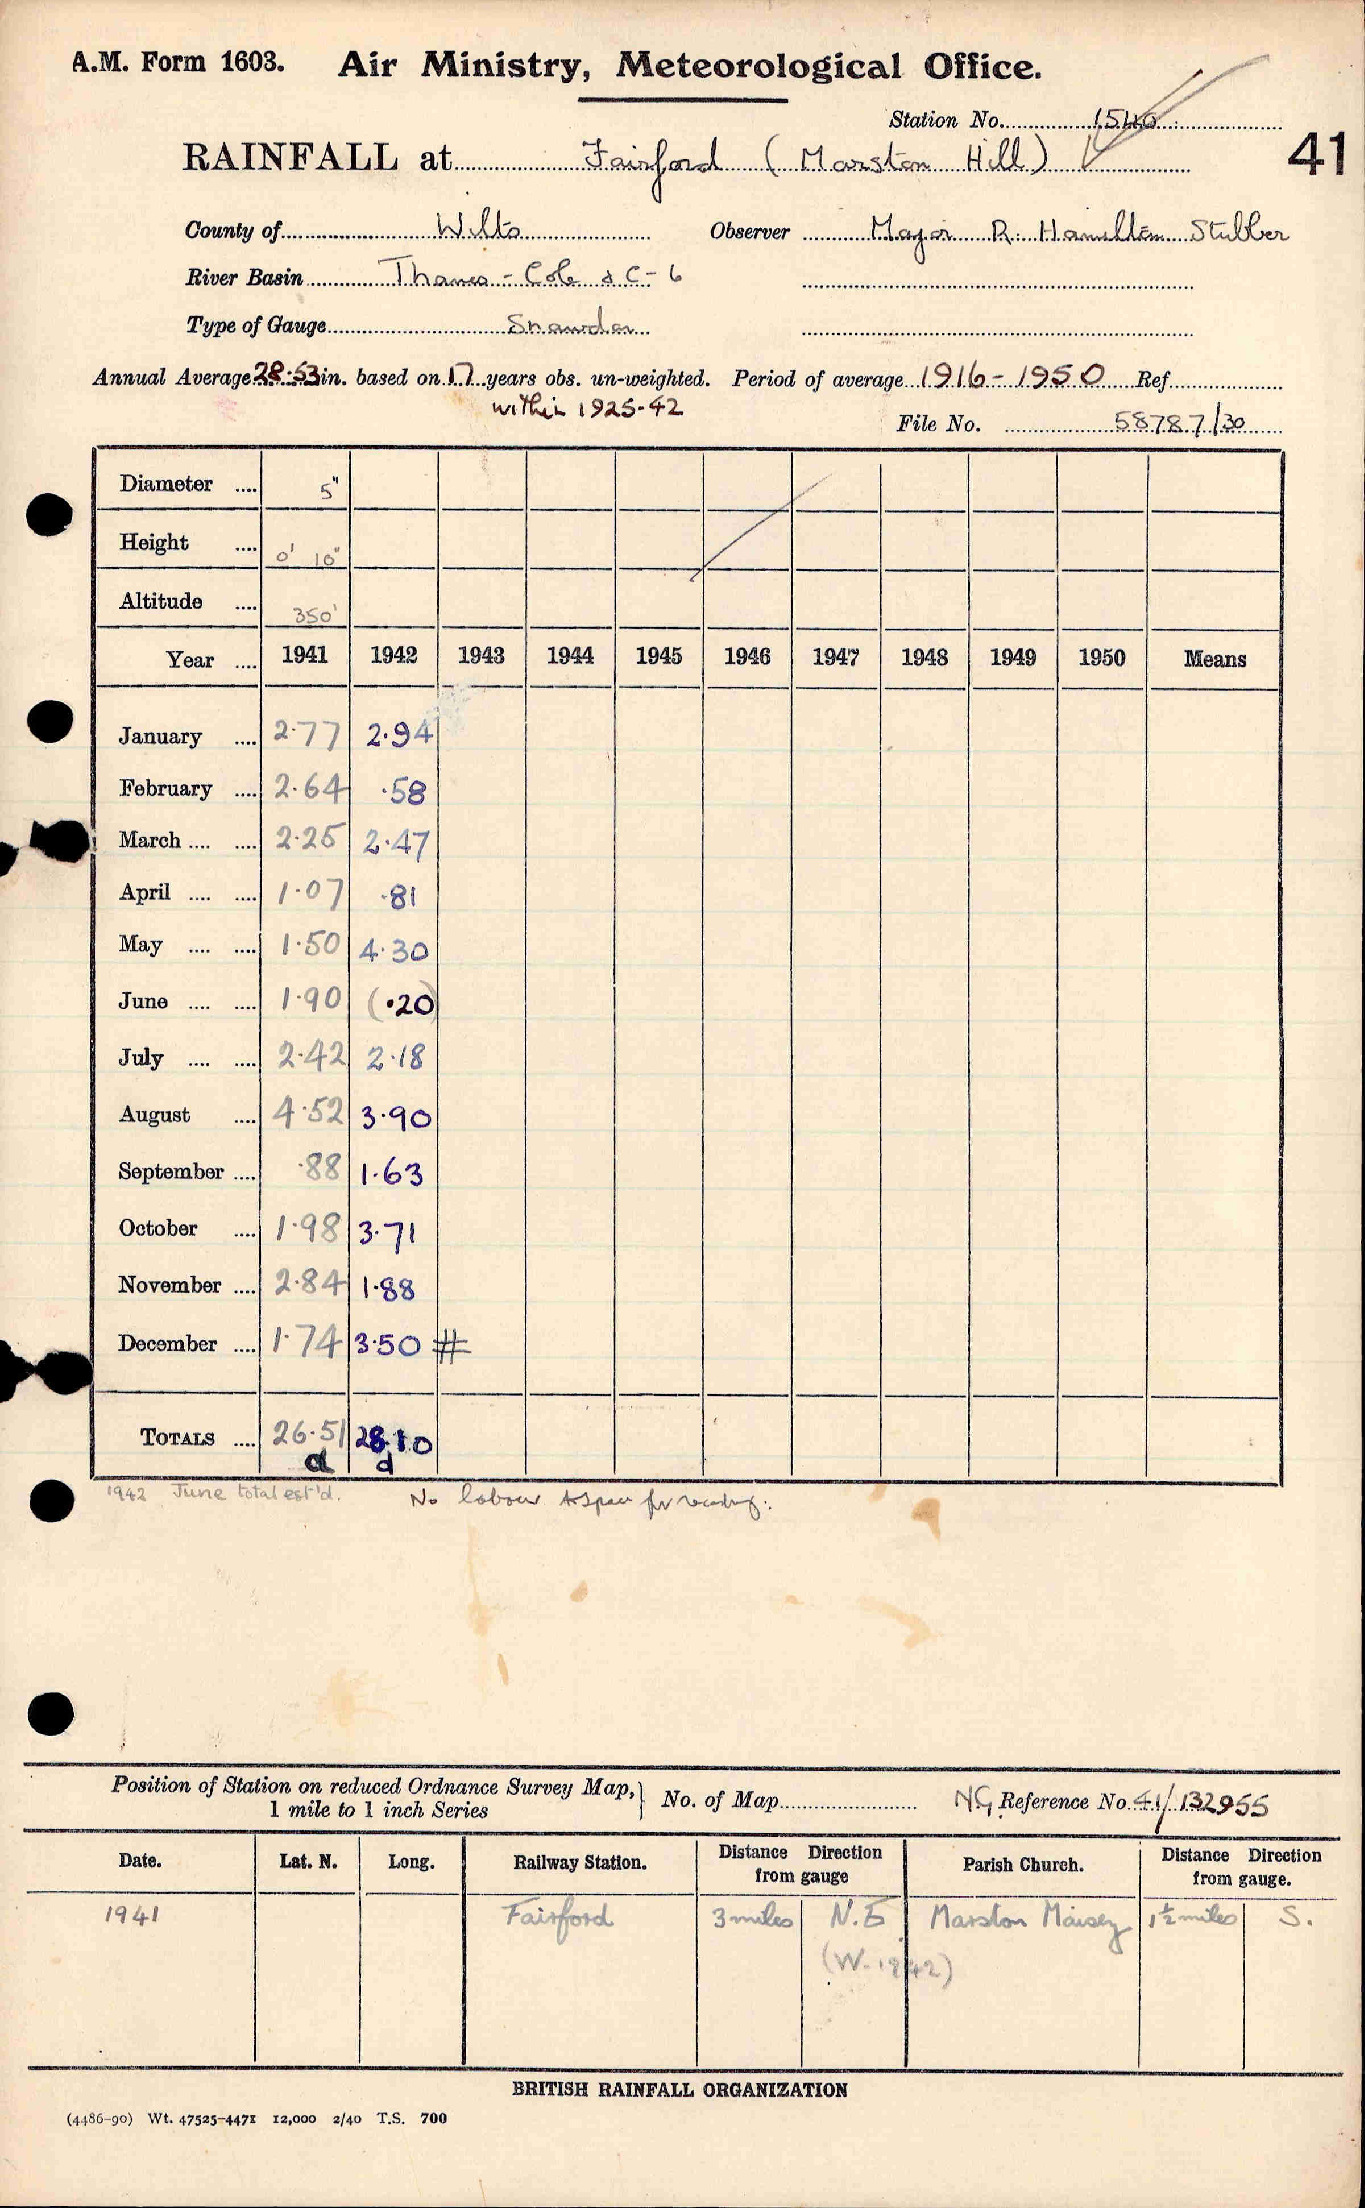 A.M. Form 1603. Air Ministry, Meteorological Office.
Station No. 1540
RAINFALL at Fairford (Marston Hill)
41
County of Wilts Observer Major R. Hamilton Stubber
River Basin Thames - Cole & C - 6
Type of Gauge Snowdon
Annual Average 28.53 in. based on 17 years obs. un-weighted. Period of average 1916-1950 Ref
within 1925-42
File No. 58787/30
Diameter .... 5"
Height .... 0' 10"
Altitude .... 350'
Year .... 1941 1942 1943 1944 1945 1946 1947 1948 1949 1950 Means
January .... 2.77 2.94
February .... 2.64 .58
March .... .... 2.25 2.47
April .... .... 1.07 .81
May .... .... 1.50 4.30
June .... .... 1.90 (.20)
July .... .... 2.42 2.18
August .... 4.52 3.90
September .... .88 1.63
October .... 1.98 3.71
November .... 2.84 1.88
December .... 1.74 3.50 #
TOTALS .... 26.51 28.10
d d
1942 June total est'd. No labour to spare for reading.
Position of Station on reduced Ordnance Survey Map, } No. of Map NG Reference No. 41/132955
1 mile to 1 inch Series
Date. Lat. N. Long. Railway Station. Distance Direction Parish Church. Distance Direction
from gauge from gauge.
1941 Fairford 3 miles N.E Marston Maisey 1½ miles S.
(W. 1942)
BRITISH RAINFALL ORGANIZATION
(4486-90) Wt. 47525-4471 12,000 2/40 T.S. 700